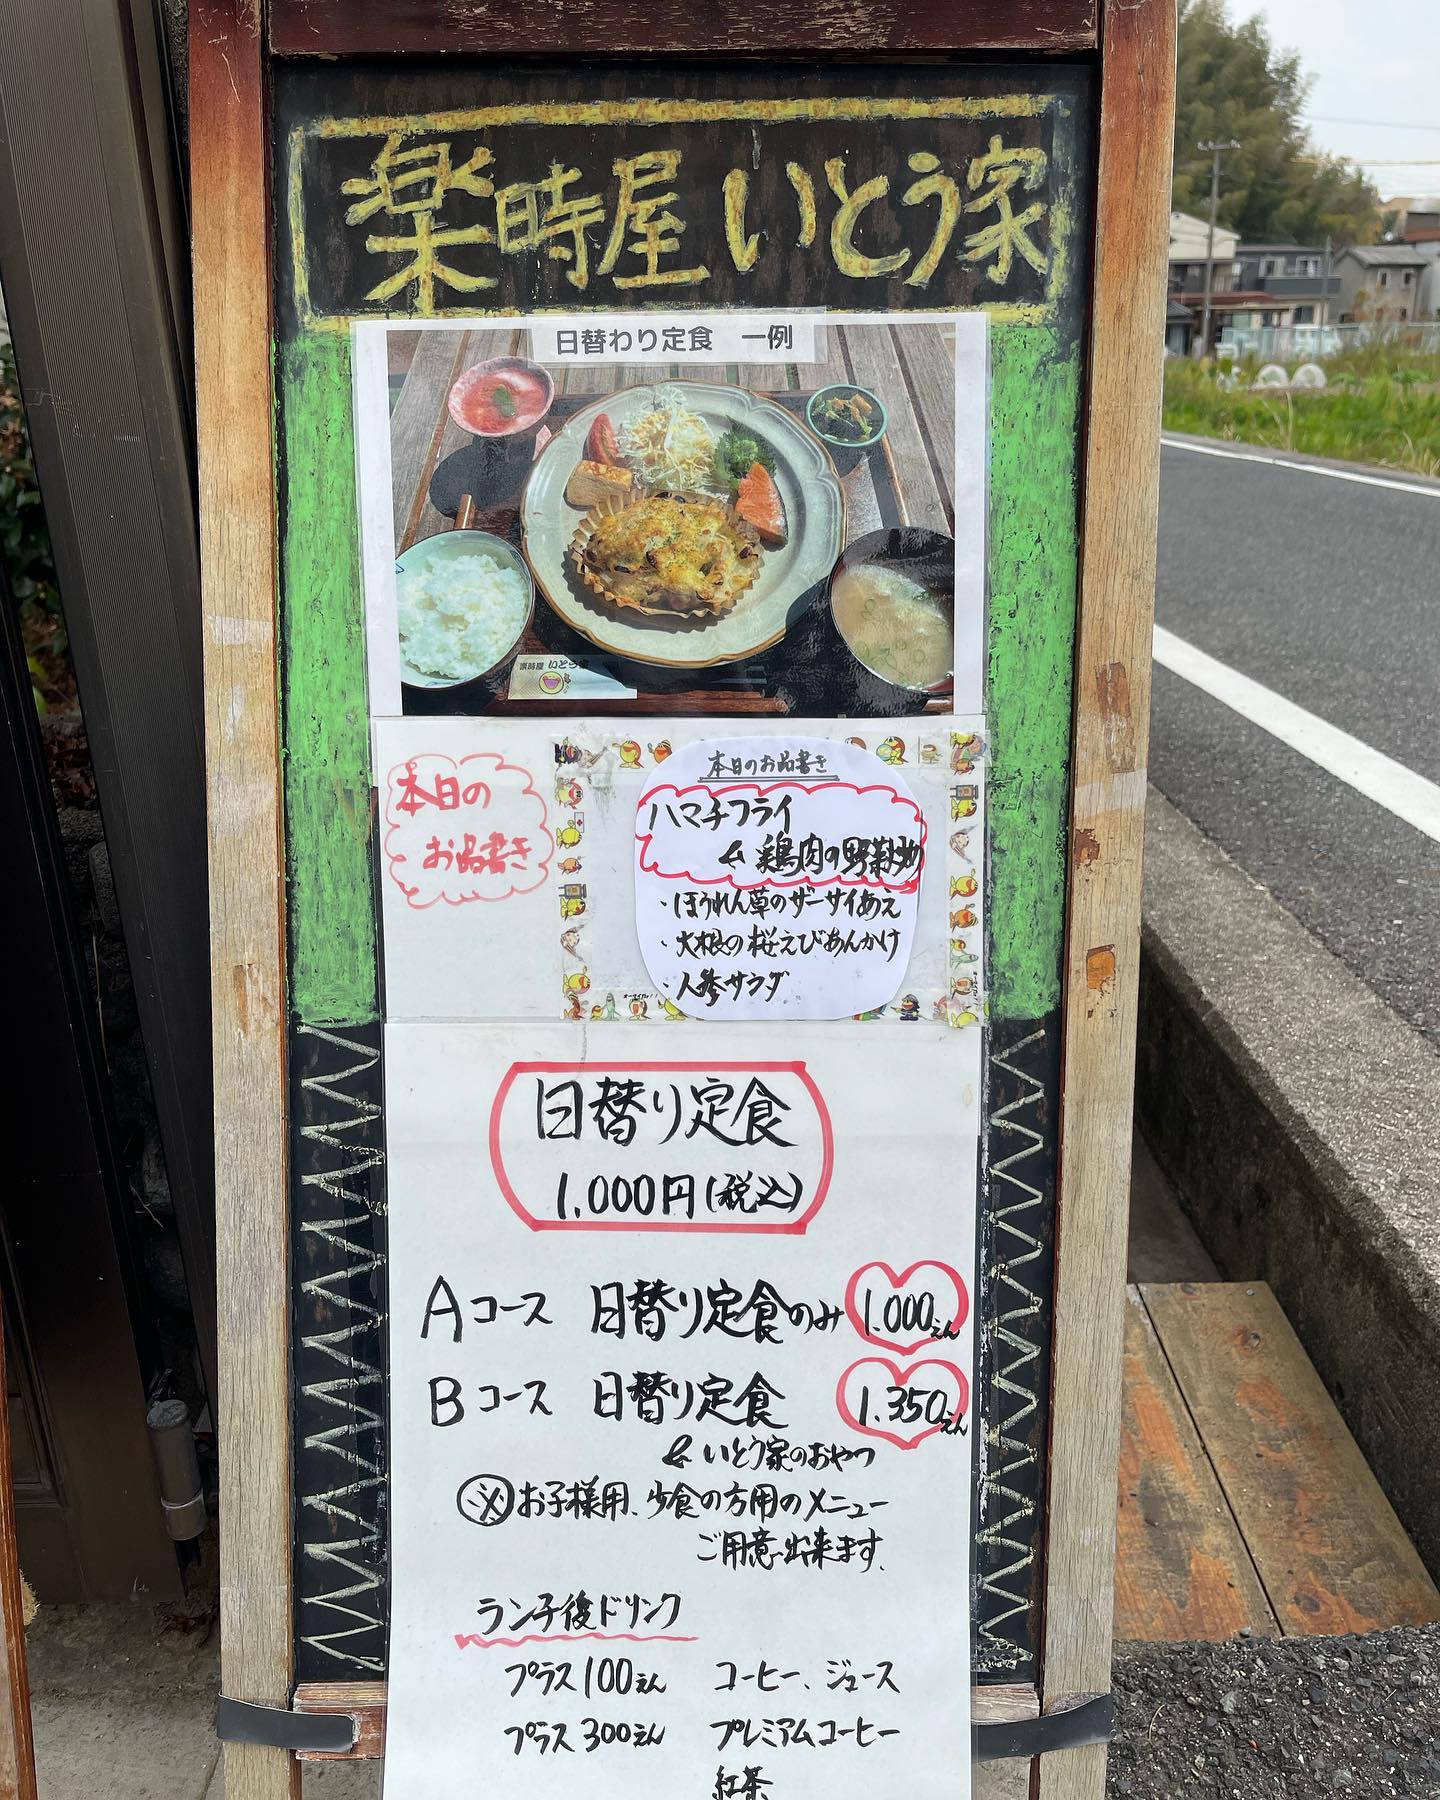 楽時屋 いとう家
日替わり定食 一例
楽時屋 いとう家
本日の
お品書き
本日のお品書き
ハマチフライ
& 鶏肉の野菜炒め
・ほうれん草のザーサイあえ
・大根の桜えびあんかけ
・人参サラダ
日替り定食
1,000円(税込)
Aコース 日替り定食のみ 1.000えん
Bコース 日替り定食 1.350えん
& いとう家のおやつ
※お子様用、少食の方用のメニュー
ご用意出来ます。
ランチ後ドリンク
プラス100えん コーヒー、ジュース
プラス300えん プレミアムコーヒー
紅茶